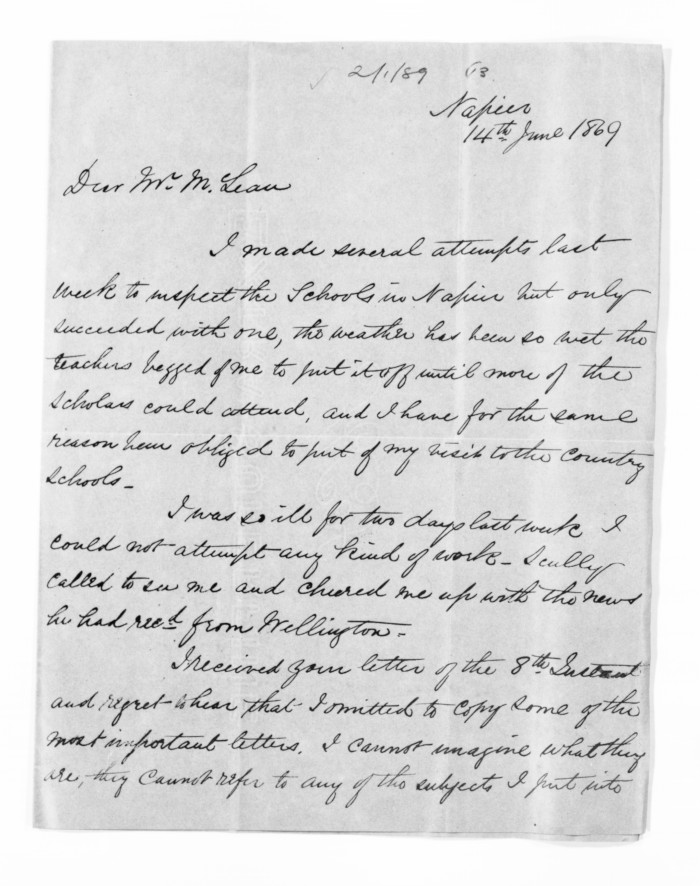 2/1/89 93
Napier
14th June 1869
Dear Mr. McLean
I made several attempts last
week to inspect the Schools in Napier but only
succeeded with one, the weather has been so wet the
teachers begged of me to put it off until more of the
scholars could attend, and I have for the same
reason been obliged to put of my visit to the Country
Schools-
I was so ill for two days last week I
could not attempt any kind of work - Scully
called to see me and cheered me up with the news
he had recd. from Wellington-
I received your letter of the 8th Instant
and regret to hear that I omitted to copy some of the
most important letters. I cannot imagine what they
are, they cannot refer to any of the subjects I put into